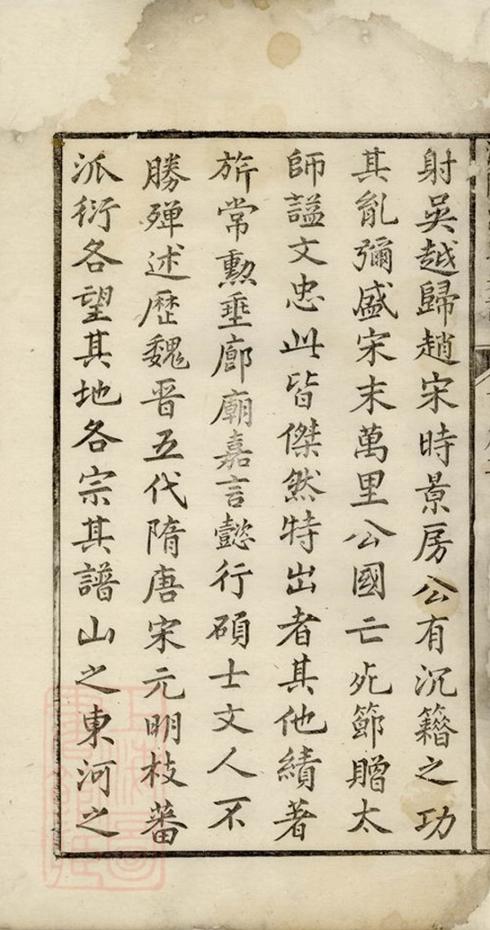 射吳越歸趙宋時景房公有沉籍之功
其胤彌盛宋末萬里公國亡死節贈太
師諡文忠此皆傑然特出者其他績著
旂常勲垂廊廟嘉言懿行碩士文人不
勝殫述歷魏晋五代隋唐宋元明枝蕃
派衍各望其地各宗其譜山之東河之